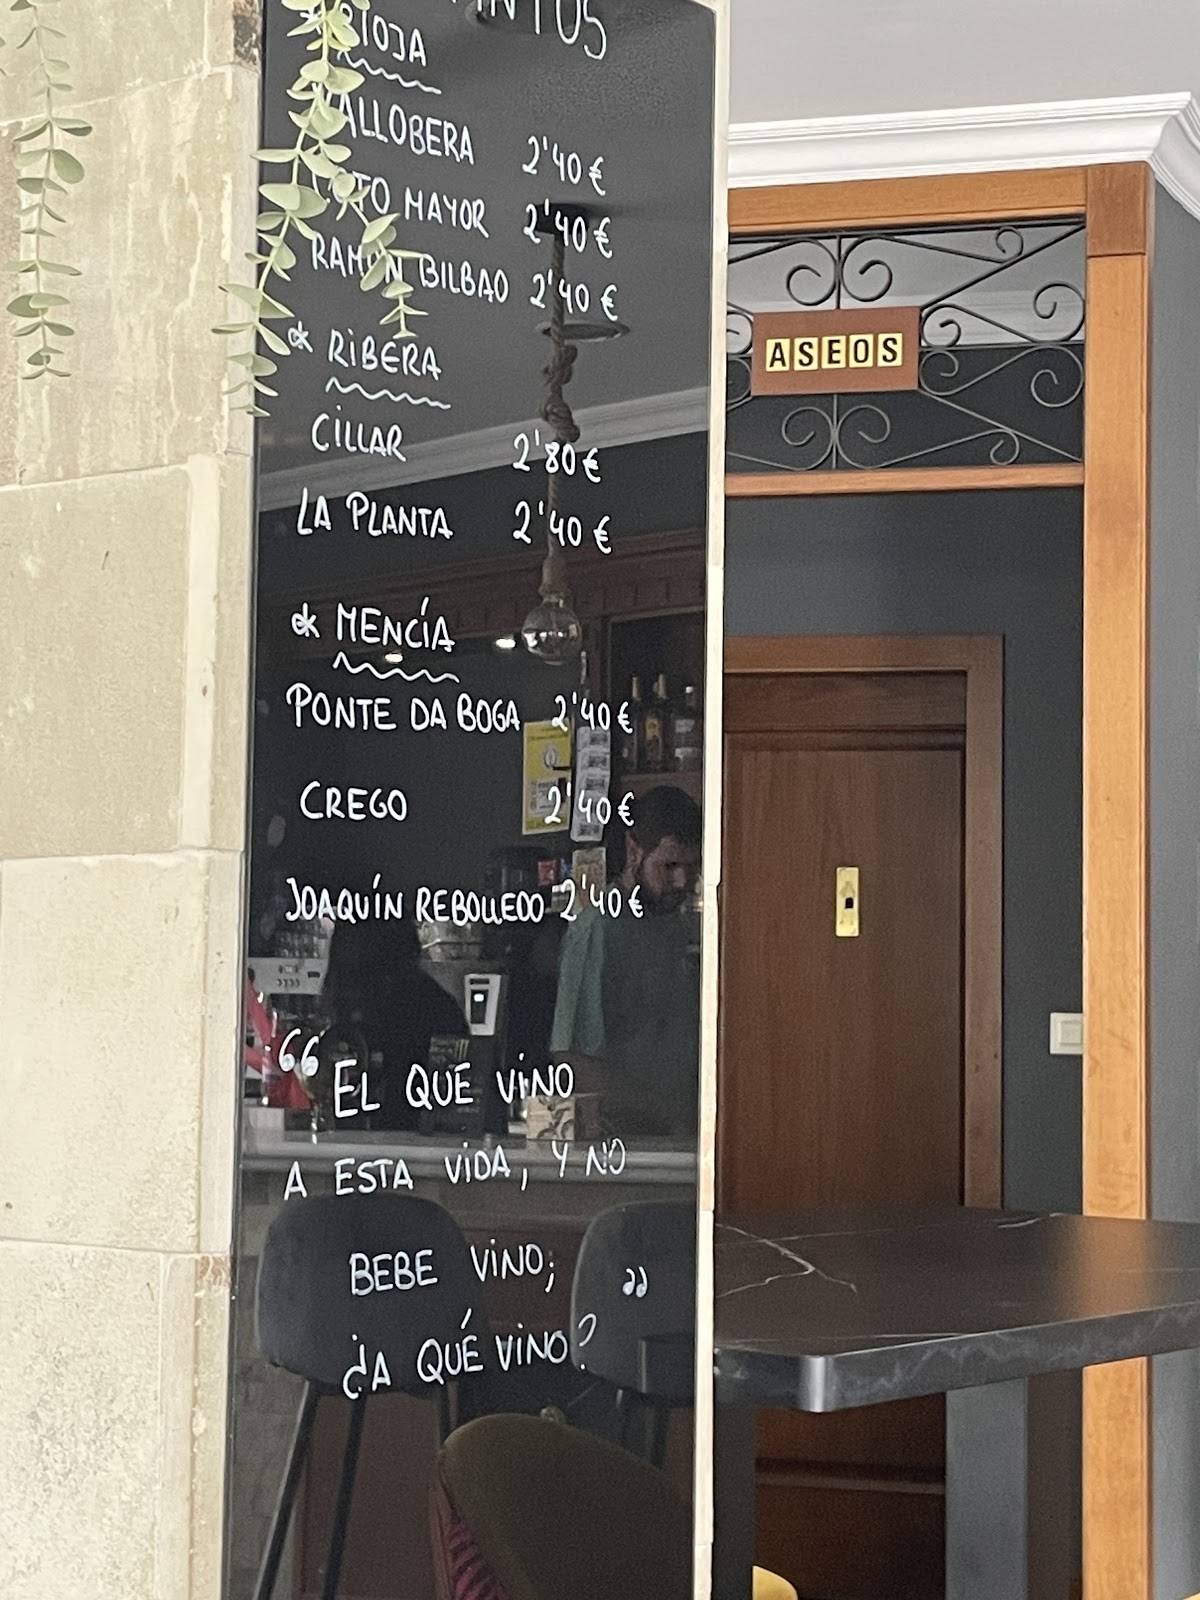 RIOJA
VALLOBERA 2'40€
COTO MAYOR 2'40€
RAMÓN BILBAO 2'40€
* RIBERA
CILLAR 2'80€
LA PLANTA 2'40€
* MENCÍA
PONTE DA BOGA 2'40€
CREGO 2'40€
JOAQUÍN REBOLLEDO 2'40€
“ EL QUE VINO
A ESTA VIDA, Y NO
BEBE VINO;
¿A QUÉ VINO? ”
ASEOS